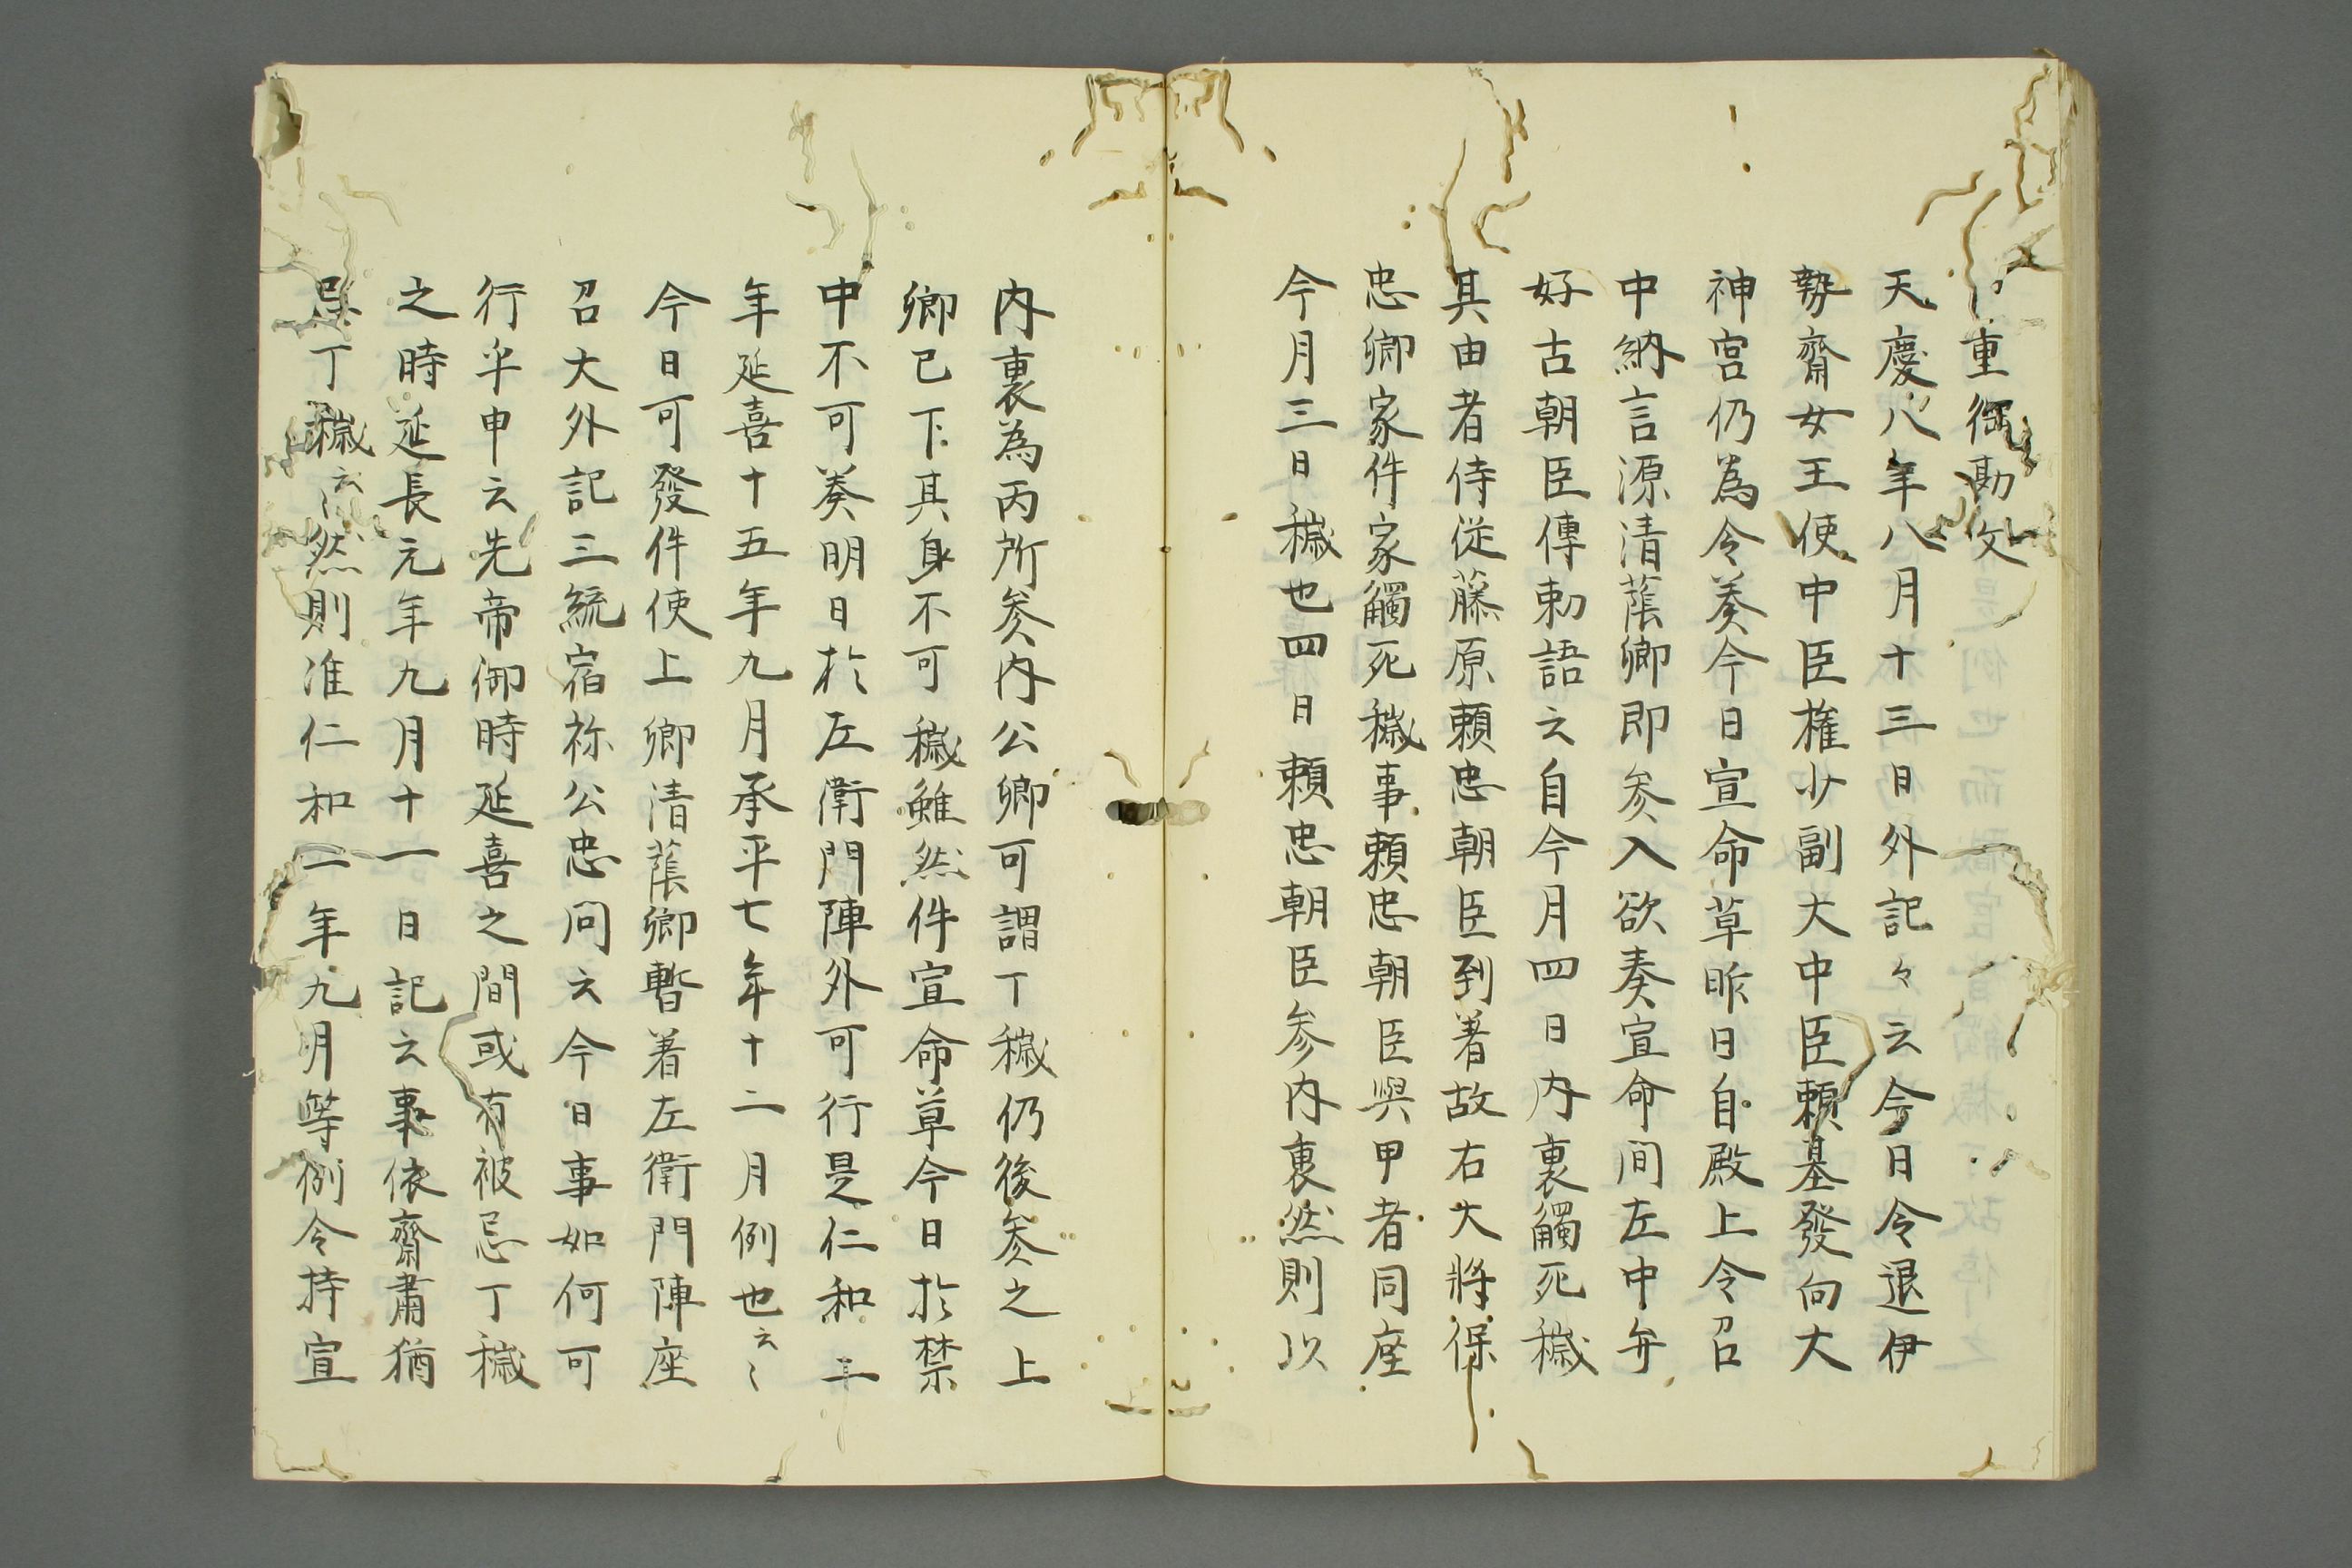 重御勘文
天慶八年八月十三日外記々云今日令退伊
勢齋女王使中臣権少副大中臣頼基發向大
神宮仍為令奏今日宣命草昨日自殿上令召
中納言源清蔭卿即参入欲奏宣命間左中弁
好古朝臣傳勅語云自今月四日内裏觸死穢
其由者侍従藤原頼忠朝臣到着故右大將保
忠卿家件家觸死穢事頼忠朝臣與甲者同座
今月三日穢也四日頼忠朝臣参内裏然則以
内裏為丙所参内公卿可謂丁穢仍後参之上
卿已下其身不可穢雖然件宣命草今日於禁
中不可奏明日於左衛門陣外可行是仁和二
年延喜十五年九月承平七年十二月例也云々
今日可發件使上卿清蔭卿暫着左衛門陣座
召大外記三統宿祢公忠問云今日事如何可
行乎申云先帝御時延喜之間或有被忌丁穢
之時延長元年九月十一日記云事依齋肅猶
忌丁穢云々然則准仁和二年九月等例令持宣